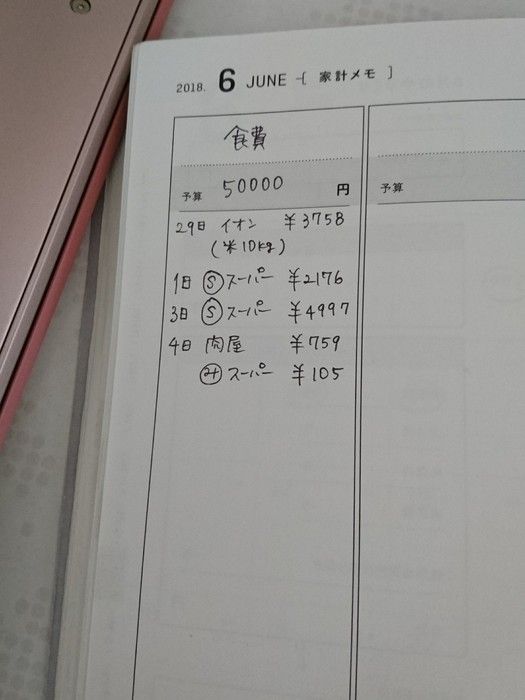 2018. 6 JUNE -[ 家計メモ ]
食費
予算 50000 円
予算
29日 イオン ¥3758
(米10kg)
1日 Ⓢスーパー ¥2176
3日 Ⓢスーパー ¥4997
4日 肉屋 ¥759
スーパー ¥105